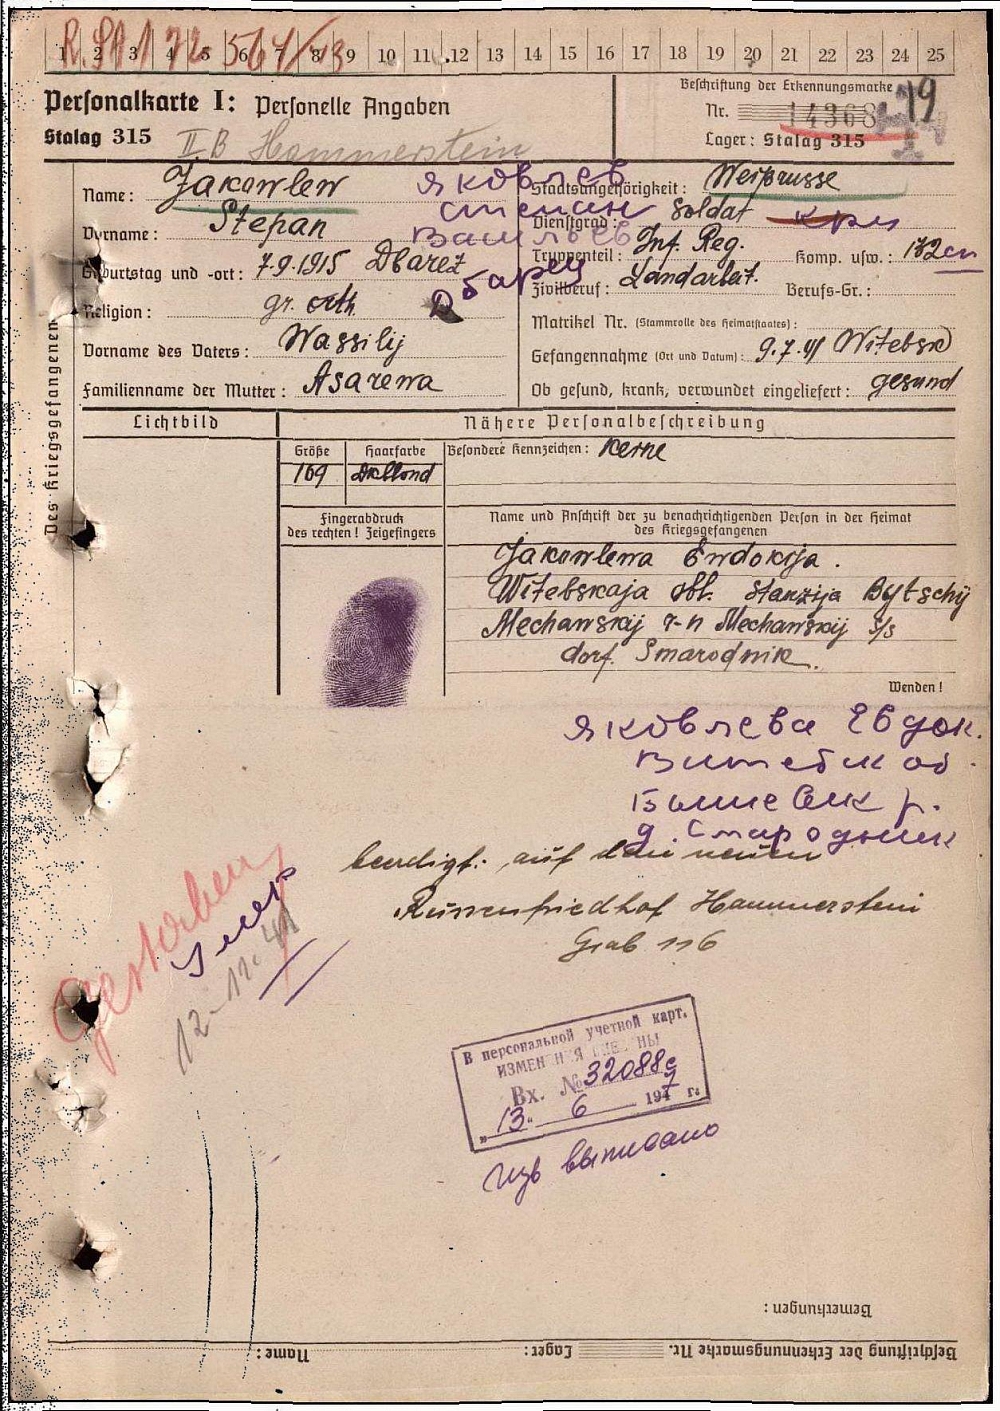 R. SA 172 564/43
1 2 3 4 5 6 7 8 9 10 11 12 13 14 15 16 17 18 19 20 21 22 23 24 25
Personalkarte I: Personelle Angaben
Stalag 315 II B Hammerstein
Beschriftung der Erkennungsmarke
Nr. 14368 19
Lager: Stalag 315
Des Kriegsgefangenen
Name: Jakowlew Яковлев
Vorname: Stepan Степан
Васильев
Geburtstag und -ort: 7.9.1915 Dbarez
Дбарец
Religion: gr. orth.
Vorname des Vaters: Wassilij
Familienname der Mutter: Asarewa
Staatsangehörigkeit: Weißrusse
Dienstgrad: Soldat кры
Truppenteil: Inf. Reg. Komp. usw.: 132
Zivilberuf: Landarbeit. Berufs-Gr.:
Matrikel Nr. (Stammrolle des Heimatstaates):
Gefangennahme (Ort und Datum): 9.7.41 Witebsk
Ob gesund, krank, verwundet eingeliefert: gesund
Lichtbild
Nähere Personalbeschreibung
Größe Haarfarbe Besondere Kennzeichen: Keine
169 Dklblond
Fingerabdruck
des rechten! Zeigefingers
Name und Anschrift der zu benachrichtigenden Person in der Heimat
des Kriegsgefangenen
Jakowlewa Ewdokija.
Witebskaja obl. Stanzija Bytschij
Mechawskij r-n Mechawskij s/s
dorf. Smarodnik.
Wenden!
Яковлева Евдок.
Витебск об
р.
д. Смародник
beerdigt: auf dem neuen
Russenfriedhof Hammerstein
Grab 116
Gestorben
умер
12.11.41
В персональной учетной карт.
ИЗМЕНЕНИЯ
Вх. № 32088с
"13" 6 1947 г.
изв выписано
Bemerkungen:
Beschriftung der Erkennungsmarke Nr. Lager: Name: